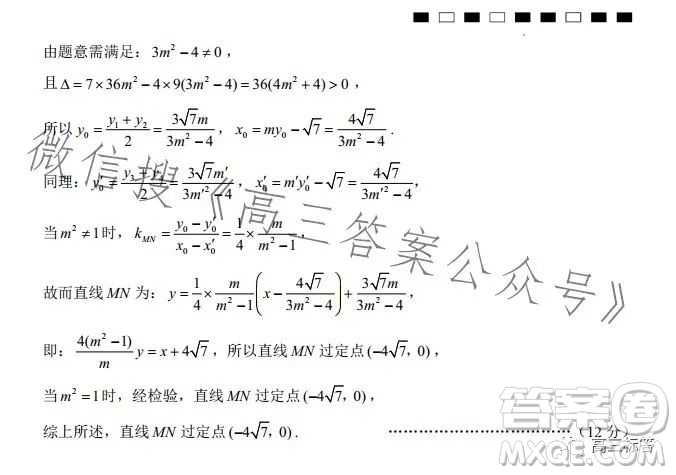 由题意需满足：3m² − 4 ≠ 0，
且 Δ = 7×36m² − 4×9(3m² − 4) = 36(4m² + 4) > 0，
所以 y₀ = (y₁ + y₂)/2 = 3√7m/(3m² − 4)，x₀ = my₀ − √7 = 4√7/(3m² − 4).
同理：y₀′ = (y₃ + y₄)/2 = 3√7m′/(3m′² − 4)，x₀′ = m′y₀′ − √7 = 4√7/(3m′² − 4)，
当 m² ≠ 1 时，k_MN = (y₀ − y₀′)/(x₀ − x₀′) = 1/4 × m/(m² − 1)，
故而直线 MN 为：y = 1/4 × m/(m² − 1)(x − 4√7/(3m² − 4)) + 3√7m/(3m² − 4)，
即：4(m² − 1)/m y = x + 4√7，所以直线 MN 过定点 (−4√7，0)，
当 m² = 1 时，经检验，直线 MN 过定点 (−4√7，0)，
综上所述，直线 MN 过定点 (−4√7，0). ………………………（12 分）
微信搜《高三答案公众号》
答案圈
高三标答
MXQE.COM